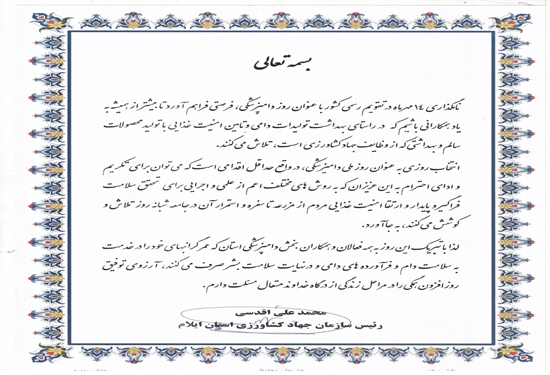 بسمه تعالی
نامگذاری ۱۴ مهرماه در تقویم رسمی کشور با عنوان روز دامپزشکی، فرصتی فراهم آورد تا بیشتر از همیشه به
یاد همکارانی باشیم که در راستای بهداشت تولیدات دامی و تامین امنیت غذایی با تولید محصولات
سالم و بهداشتی که از وظایف جهاد کشاورزی است، تلاش می کنند.
انتخاب روزی به عنوان روز ملی دامپزشکی، در واقع حداقل اقدامی است که می توان برای تکریم
و ادای احترام به این عزیزان که به روش های مختلف اعم از علمی و اجرایی برای تحقق سلامت
فراگیر و پایدار و ارتقا امنیت غذایی مردم از مزرعه تا سفره و استقرار آن در جامعه شبانه روز تلاش و
کوشش می کنند، به جا آورد.
لذا با تبریک این روز به همه فعالان و همکاران بخش دامپزشکی استان که عمر گرانبهای خود را در خدمت
به سلامت دام و فرآورده های دامی و در نهایت سلامت بشر صرف می کنند، آرزوی توفیق
روز افزون همگی را در مراحل زندگی از درگاه خداوند متعال مسئلت دارم.
محمد علی اقدسی
رئیس سازمان جهاد کشاورزی استان ایلام